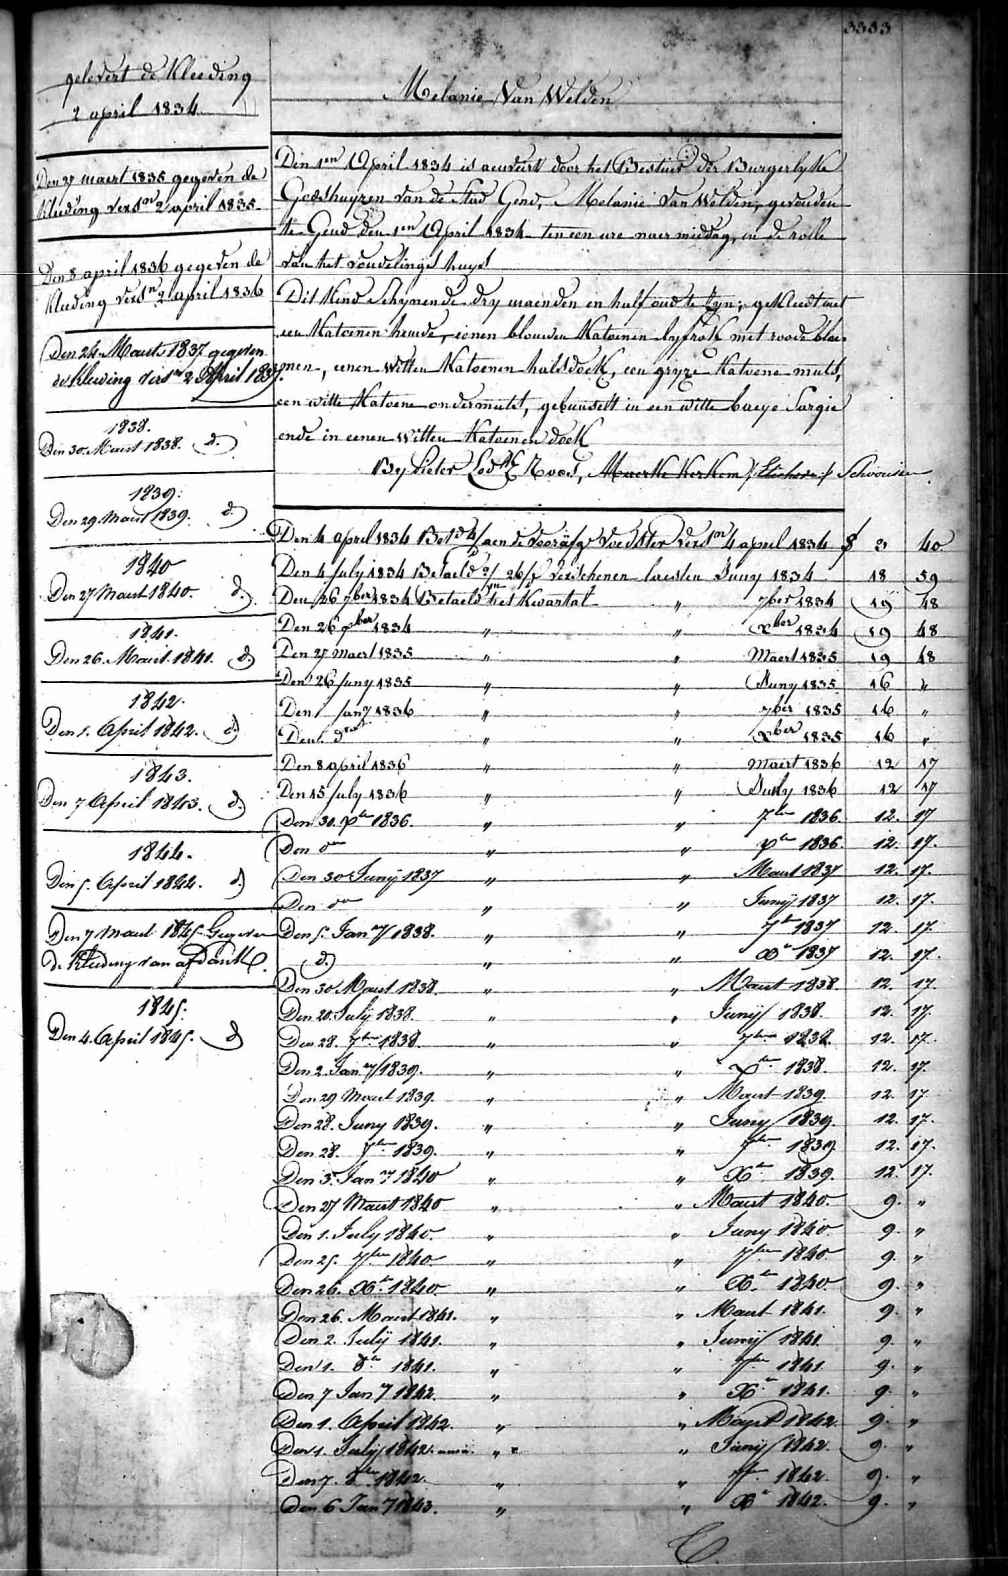 3333
gelevert de Kleeding
2 april 1834
Den 27 maert 1835 gegeven de
Kleeding vers.en 2 april 1835
Den 8 april 1836 gegeven de
Kleeding vers.en 2 april 1836
Den 24 Maert 1837 gegeven
de Kleeding vers.en 2 April 1837.
1838.
Den 30 Maert 1838. d.o
1839:
Den 29 Maert 1839. d.o
1840
Den 27 Maert 1840. d.o
1841.
Den 26. Maert 1841. d.o
1842.
Den 1. April 1842. d.o
1843.
Den 7 April 1843. d.o
1844.
Den 5. April 1844. d.o
Den 7 Maert 1845 Gegeven
de Kleeding van afdank.
1845.
Den 4. April 1845. d.o
Melanie Van Welden
Den 1en April 1834 is aenveirt door het Bestier der Burgerlyke
Godshuyzen van de Stad Gend, Melanie Van Welden, gevonden
te Gend den 1en April 1834 ten een ure naer middag, in de rolle
van het vondelingshuys
Dit Kind schynende dry maenden en half oud te zyn; gekleed met
een Katoenen hemde, eenen blouwen Katoenen lyfrok met roode bloe-
men, eenen witten Katoenen halsdoek, een gryze Katoene muts,
een witte Katoene ondermuts, gebusselt in een witte baeye Sargie
ende in eenen witten Katoenen doek
By Pieter Roos, Maerke Kerkem Schoorisse
Den 4 april 1834 Bet.d aen de voorafg.e voedster vers.en 4 april 1834 3 40
Den 4 july 1834 Betaeld verschenen laesten Juny 1834 18 59
Den 26 7ber 1834 Betaeld het Kwartael " 7ber 1834 19 48
Den 26 xber 1834 " " xber 1834 19 48
Den 27 maert 1835 " " Maert 1835 19 48
Den 26 juny 1835 " " Juny 1835 16 "
Den 1 jany 1836 " " 7ber 1835 16 "
Den " " xber 1835 16 "
Den 8 april 1836 " " Maert 1836 12 17
Den 15 july 1836 " " Juny 1836 12 17
Den 30. xber 1836. " " 7ber 1836. 12. 17
Den do " " xber 1836. 12. 17.
Den 30 Junij 1837 " " Maert 1837 12. 17.
Den do " " Junij 1837 12. 17.
Den 5. Jany 1838. " " 7er 1837 12. 17.
d.o " " Xer 1837 12. 17.
Den 30 Maert 1838. " " Maert 1838. 12. 17.
Den 20. July 1838. " " Junij 1838. 12. 17.
Den 28. 7ber 1838. " " 7ber 1838. 12. 17.
Den 2. Jany 1839. " " Xber 1838. 12. 17.
Den 29 Maert 1839. " " Maert 1839. 12. 17.
Den 28. Juny 1839. " " Juny 1839. 12. 17.
Den 28. 7ber 1839. " " 7ber 1839. 12. 17.
Den 3. Jany 1840 " " Xer 1839. 12. 17.
Den 27 Maert 1840 " " Maert 1840. 9. "
Den 1. July 1840. " " Juny 1840. 9. "
Den 25. 7ber 1840 " " 7ber 1840. 9. "
Den 26. Xer 1840. " " Xer 1840. 9. "
Den 26. Maert 1841. " " Maert 1841. 9. "
Den 2. Julij 1841. " " Junij 1841. 9. "
Den 1. 8er 1841. " " 7ber 1841. 9. "
Den 7 Jany 1842. " " Xer 1841. 9. "
Den 1. April 1842. " " Maert 1842. 9. "
Den 1. July 1842. " " Junij 1842. 9. "
Den 7. 8ber 1842. " " 7er 1842. 9. "
Den 6 Jany 1843. " " Xer 1842. 9. "